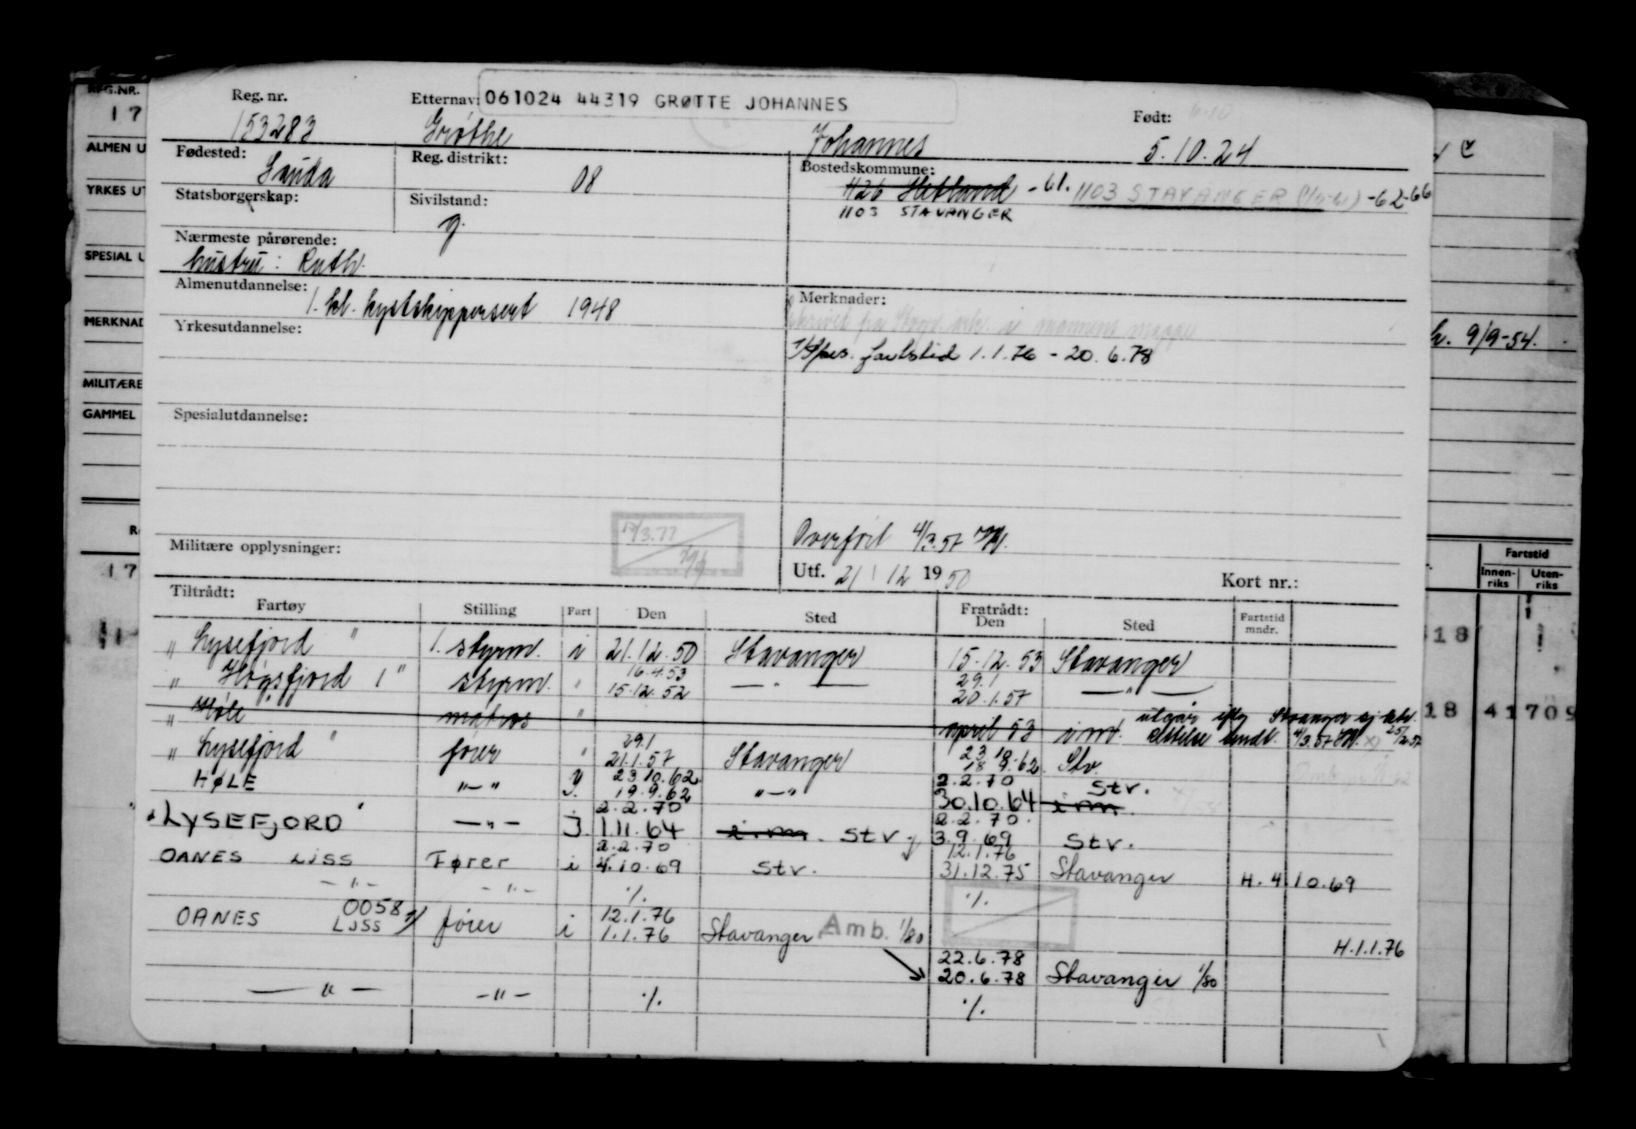 REG.NR.
17
ALMEN U
YRKES UT
SPESIAL U
MERKNAD
MILITÆRE
GAMMEL
17
Reg. nr. Etternavn: 061024 44319 GRØTTE JOHANNES Født:
153283 Grøthe Johannes 5.10.24
Fødested: Sauda Reg. distrikt: 08 Bostedskommune:
1126 Hetland -61. 1103 STAVANGER -62-66
Statsborgerskap: Sivilstand: g. 1103 STAVANGER
Nærmeste pårørende:
hustru: Ruth.
Almenutdannelse: 1. kl. kystskippersert 1948 Merknader:
Yrkesutdannelse:
1.1.76 - 20.6.78
h. 9/9-54.
Spesialutdannelse:
Militære opplysninger: 17/3.77
Overført 4/3.57
Utf. 21/12 1950 Kort nr.:
Tiltrådt:
Fartøy Stilling Fart Den Sted Fratrådt: Den Sted Fartstid mndr.
Fartstid
Innenriks Utenriks
" Lysefjord " 1. styrm. i 21.12.50 Stavanger 15.12.53 Stavanger
16.4.53 29.1
" Høgsfjord 1" styrm. " 15.12.52 — " — 20.1.57 — " —
" Høle matros " april 53 i.m. utgår iflg Stavanger sj.
4/3.57
29.1
" Lysefjord " fører " 21.1.57 Stavanger 18.9.62 Stv.
23.10.62 2.2.70
HØLE "-" 19.9.62 "-" 30.10.64 i m. Stv.
2.2.70 2.2.70.
"LYSEFJORD" -"- J 1.11.64 i.m. Stv 3.9.69 Stv.
2.2.70 12.1.76
OANES LJSS Fører i 4.10.69 Stv. 31.12.75 Stavanger H. 4.10.69
-"- -"- ./. ./.
0058 12.1.76
OANES LJSS fører i 1.1.76 Stavanger Amb. 1/80 H.1.1.76
22.6.78
20.6.78 Stavanger 1/80
-"- -"- ./. ./.
18
18 41709